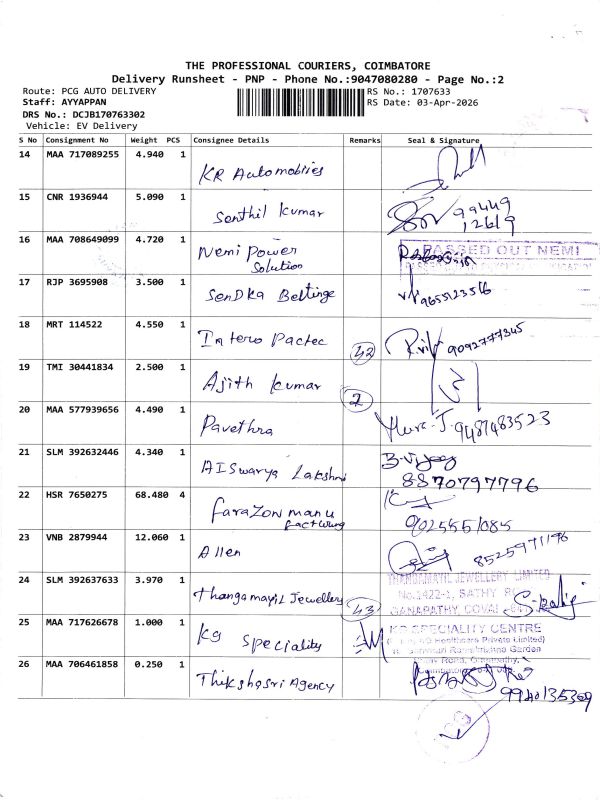 THE PROFESSIONAL COURIERS, COIMBATORE
Delivery Runsheet - PNP - Phone No.:9047080280 - Page No.:2
Route: PCG AUTO DELIVERY
RS No.: 1707633
Staff: AYYAPPAN
RS Date: 03-Apr-2026
DRS No.: DCJB170763302
Vehicle: EV Delivery
S No Consignment No Weight PCS Consignee Details Remarks Seal & Signature
14 MAA 717089255 4.940 1 KR Automobiles
15 CNR 1936944 5.090 1 Senthil kumar 99449
12619
16 MAA 708649099 4.720 1 Nemi Power
Solution
PASSED OUT NEMI
17 RJP 3695908 3.500 1 SenDka Beltinge 9655123516
18 MRT 114522 4.550 1 Intero Pactec 42 9092777345
19 TMI 30441834 2.500 1 Ajith kumar 2
20 MAA 577939656 4.490 1 Pavethra 9487483523
21 SLM 392632446 4.340 1 AISwarya Lakshmi B.Vijay
8870797796
22 HSR 7650275 68.480 4 farazon manu
facturing
9025551085
23 VNB 2879944 12.060 1 Allen 8525971196
24 SLM 392637633 3.970 1 Thangamayil Jewellery 43
THANGAMAYIL JEWELLERY LIMITED
No.1422-1, SATHY
GANAPATHY, COVAI
25 MAA 717626678 1.000 1 kg speciality
KG SPECIALITY CENTRE
Healthcare Private Limited)
Garden
Road, Ganapathy,
26 MAA 706461858 0.250 1 Thikshasri Agency 9940135309